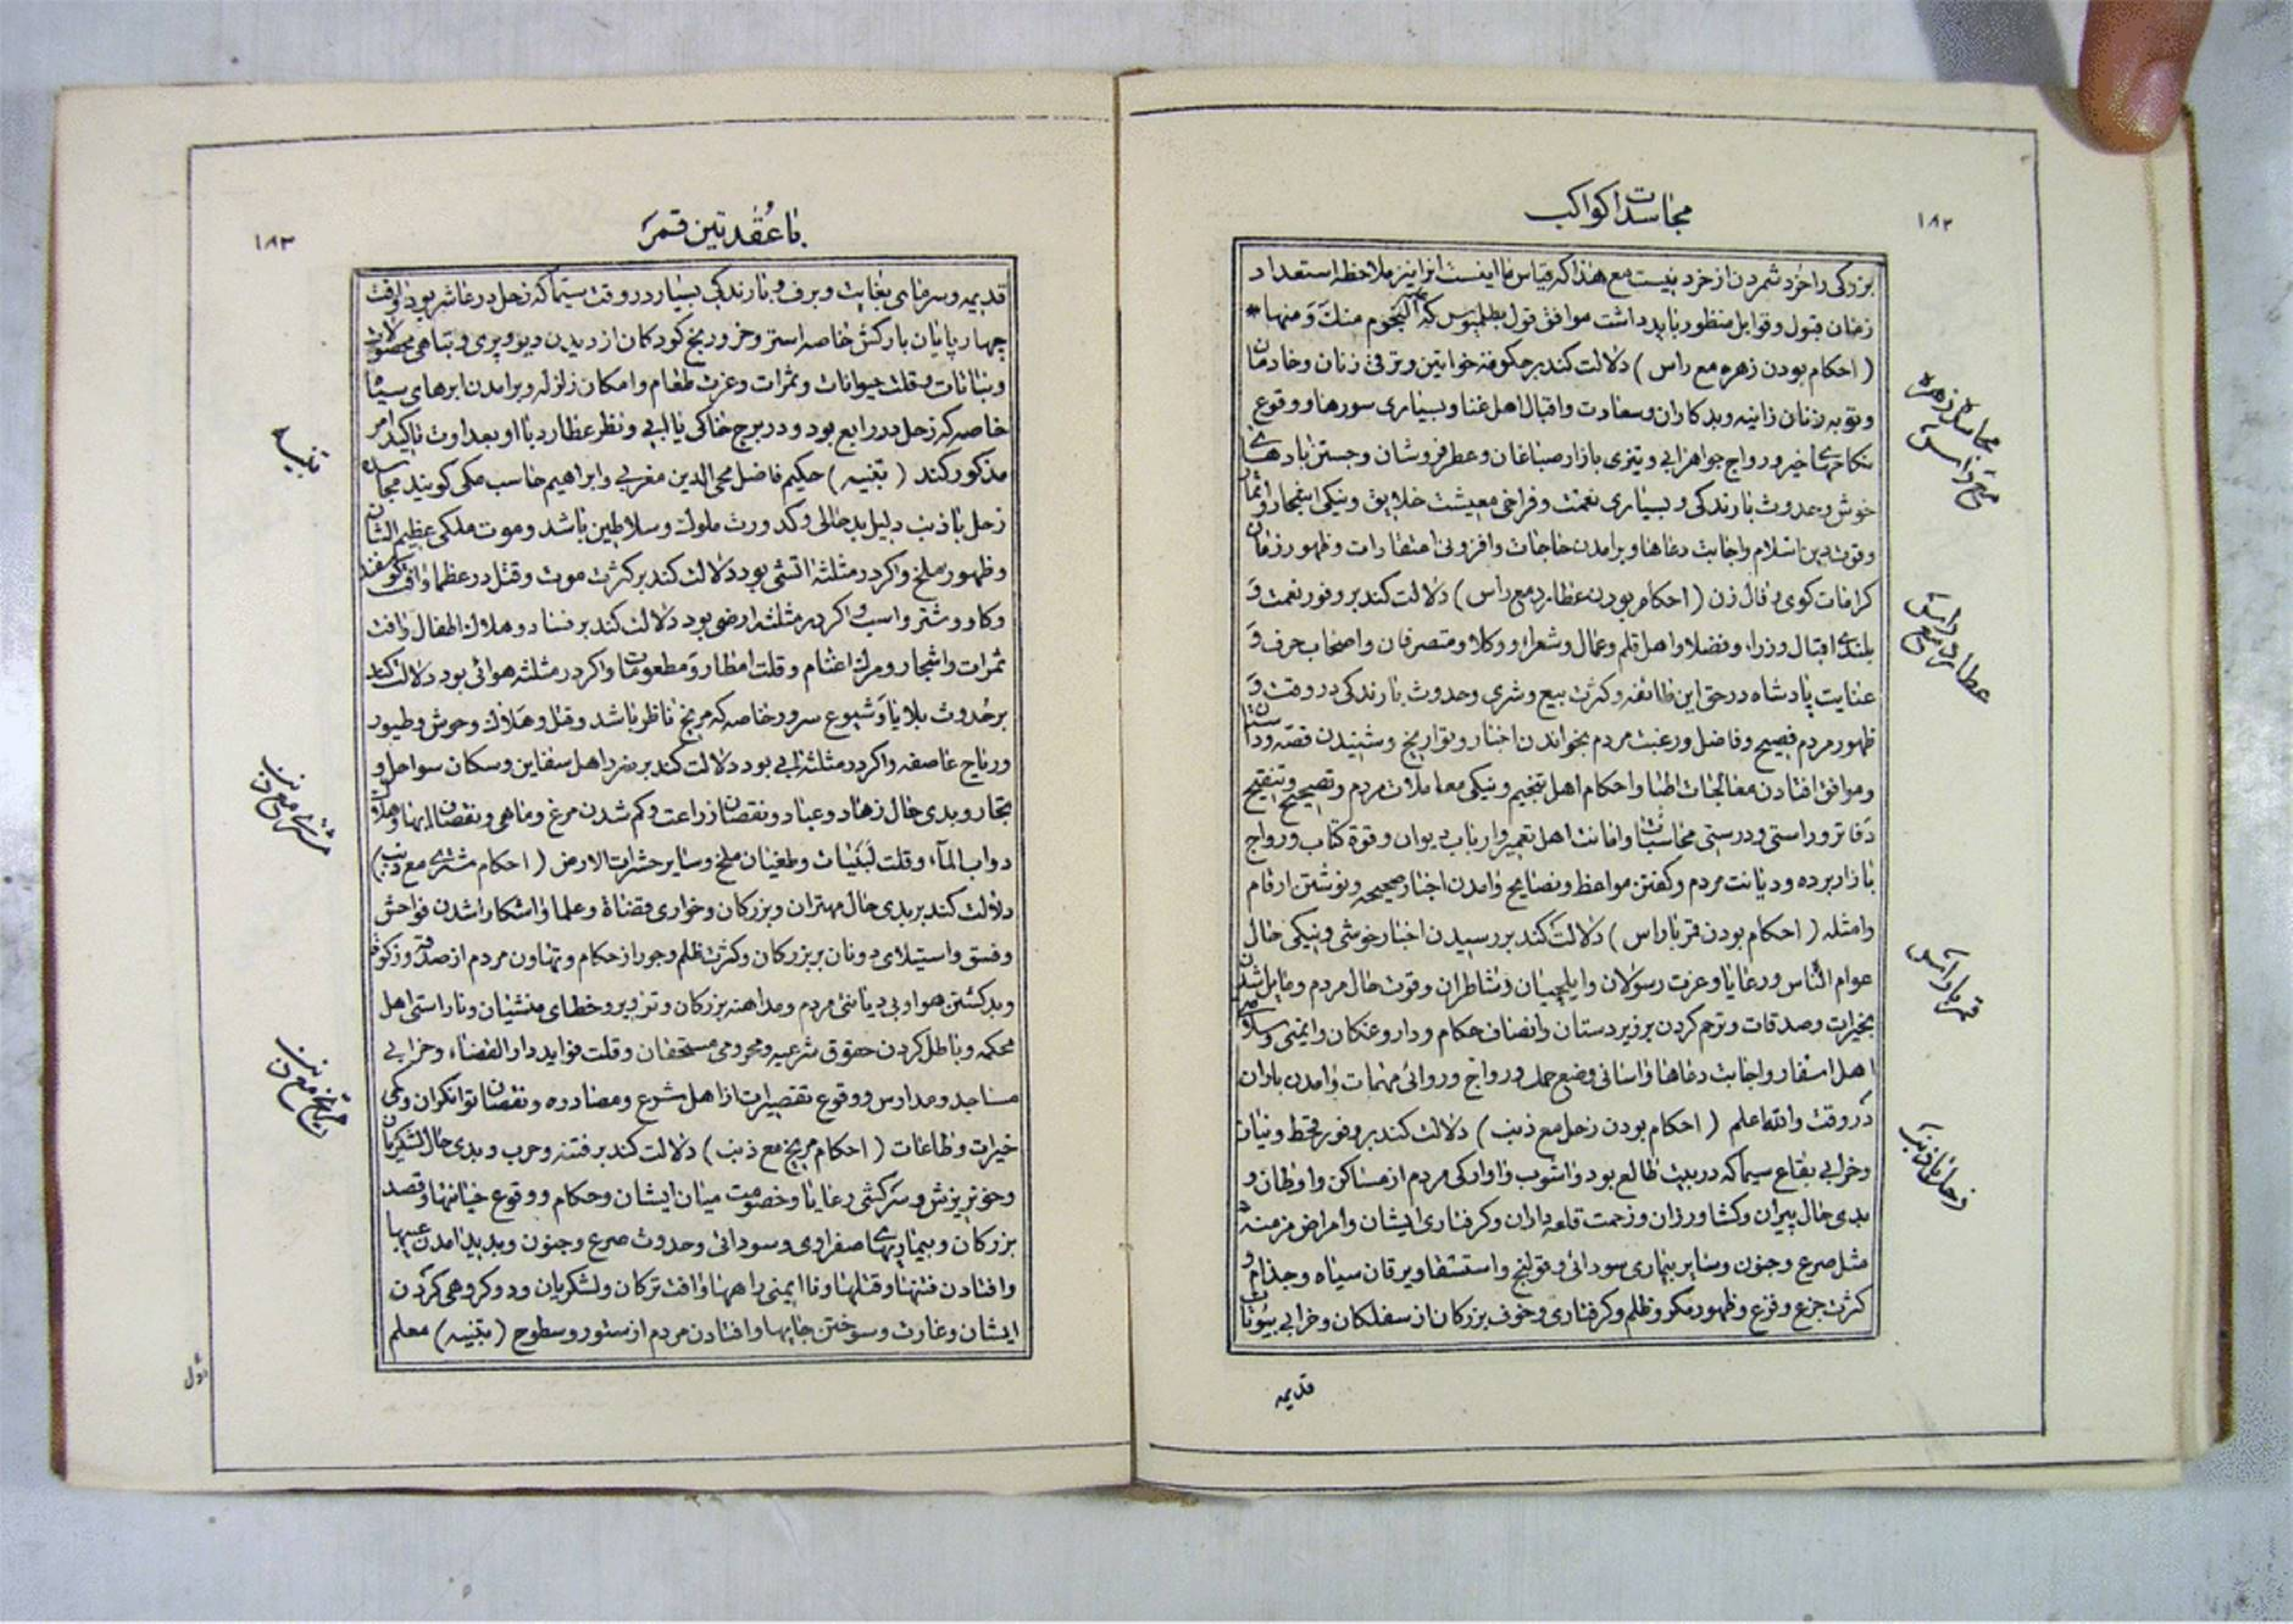 مجاسدات کواکب
۱۸۲
بزرکی را خرد شمردن از خرد نیست مع هذا که قیاس ما اینست انرا نیز ملاحظه استعداد
زمان قبول و قوابل منظور باید داشت موافق قول بطلمیوس که علم النجوم منك و منها *
(احکام بودن زهره مع راس) دلالت کند بر حکومة خواتین و ترقی زنان و خادمان
و توبه زنان زانیه و بدکاران و سعادت و اقبال اهل غنا و بسیاری سورها و وقوع
نکاحهای خیر و رواج جواهرابی و تیزی بازار صباغان و عطرفروشان و جستن بادهای
خوش و حدوث بارندکی و بسیاری نعمت و فراخی معیشت خلایق و نیکی اشجار و اثمار
و قوت دین اسلام و اجابت دعاها و برامدن حاجات و افزونی اعتقادات و ظهور زنان
کرامات کوی و فال زن (احکام بودن عطارد مع راس) دلالت کند بر وفور نعمت و
بلندی اقبال وزراء و فضلا و اهل قلم و عمال و شعراء و وکلا و متصرفان و اصحاب حرف و
عنایت پادشاه در حق این طائفه و کثرت بیع و شری و حدوث بارندکی در وقت و
ظهور مردم فصیح و فاضل و رغبت مردم بخواندن اخبار و تواریخ و شنیدن قصه و داستان
و موافق افتادن معالجات اطبا و احکام اهل تنجیم و نیکی معاملات مردم و تصحیح و تنقیح
دفاتر و راستی و درستی محاسبات و امانت اهل تعمیر و ارباب دیوان و قوة کتاب و رواج
بازار برده و دیانت مردم و کفتن مواعظ و نصایح و امدن اخبار صحیحه و نوشتن ارقام
و امثله (احکام بودن قمر با راس) دلالت کند بر رسیدن اخبار خوشی و نیکی حال
عوام الناس و رعایا و عزت رسولان و ایلچیان و شاطران و قوت حال مردم و مایل شدن
بخیرات و صدقات و ترحم کردن بر زیردستان و انصاف حکام و داروغکان و ایمنی و سلامتی
اهل اسفار و اجابت دعاها و اسانی وضع حمل و رواج و روائی مهمات و امدن باران
در وقت والله اعلم (احکام بودن زحل مع ذنب) دلالت کند بر وفور قحط و نیاز
و خرابی بقاع سیما که در بیت طالع بود و اشوب و اوارکی مردم از مساکن و اوطان و
بدی حال پیران و کشاورزان و زحمت قلعه داران و کرفتاری ایشان و امراض مزمنه
مثل صرع و جنون و سایر بیماری سودائی و قولنج و استسقا و یرقان سیاه و جذام و
کثرت جزع و فزع و ظهور مکر و ظلم و کرفتاری و خوف بزرکان از سفلکان و خرابی بیوتات
قدیمه
مجاسده زهره
مع راس
عطارد مع راس
قمر با راس
زحل با ذنب
با عقدتین قمر
۱۸۳
قدیمه و سرمای بغایت و برف و بارندکی بسیار در وقت سیما که زحل در عاشر بود و افت
چهارپایان بارکش خاصه استر و خر و رنج کودکان از دیدن دیو و پری و تباهی محصولات
و نباتات و قلت حیوانات و ثمرات و عزت طعام و امکان زلزله و برامدن ابرهای سیاه
خاصه که زحل در رابع بود و در برج خاکی یا ابی و نظر عطارد با او بعداوت تاکید امر
مذکور کند (تنبیه) حکیم فاضل محی الدین مغربی و ابراهیم حاسب مکی کویند مجاسده
زحل با ذنب دلیل بدحالی و کدورت ملوك و سلاطین باشد و موت ملکی عظیم الشان
و ظهور ملخ و اکر در مثلثه اتشی بود دلالت کند بر کثرت موت و قتل در عظما و افت کوسفند
و کاو و شتر و اسب و اکر در مثلثه ارضی بود دلالت کند بر فساد و هلاك اطفال و افت
ثمرات و اشجار و مرك اغنام و قلت امطار و مطعومات و اکر در مثلثه هوائی بود دلالت کند
بر حدوث بلایا و شیوع سرور خاصه که مریخ ناظر باشد و قتل و هلاك وحوش و طیور
و ریاح عاصفه و اکر در مثلثه ابی بود دلالت کند بر ضرر اهل سفاین و سکان سواحل و
تجار و بدی حال زهاد و عباد و نقصان زراعت و کم شدن مرغ و ماهی و نقصان ابها و هلاك
دواب الماء و قلت لبنیات و طغیان ملخ و سایر حشرات الارض (احکام مشتری مع ذنب)
دلالت کند بر بدی حال مهتران و بزرکان و خواری قضاة و علما و اشکارا شدن فواحش
و فسق و استیلای دونان بر بزرکان و کثرت ظلم و جور از حکام و تهاون مردم از صدقه و زکوة
و بد کشتن هوا و بی دیانتی مردم و مداهنه بزرکان و تزویر و خطای منشیان و ناراستی اهل
محکمه و باطل کردن حقوق شرعیه و محرومی مستحقان و قلت فواید دار القضاء و خرابی
مساجد و مدارس و وقوع تقصیرات از اهل شرع و مصادره و نقصان توانکران و کمی
خیرات و طاعات (احکام مریخ مع ذنب) دلالت کند بر فتنه و حرب و بدی حال لشکریان
و خونریزش و سرکشی رعایا و خصومت میان ایشان و حکام و وقوع خیانتها و قصد
بزرکان و بیماریهای صفراوی و سودائی و حدوث صرع و جنون و پدید امدن عیبها
و افتادن فتنها و قتلها و ناایمنی راهها و افت ترکان و لشکریان و دوکروهی کردن
ایشان و غارت و سوختن جایها و افتادن مردم از ستور و سطوح (تنبیه) معلم
تنبیه
مشتری مع ذنب
مریخ مع ذنب
اول